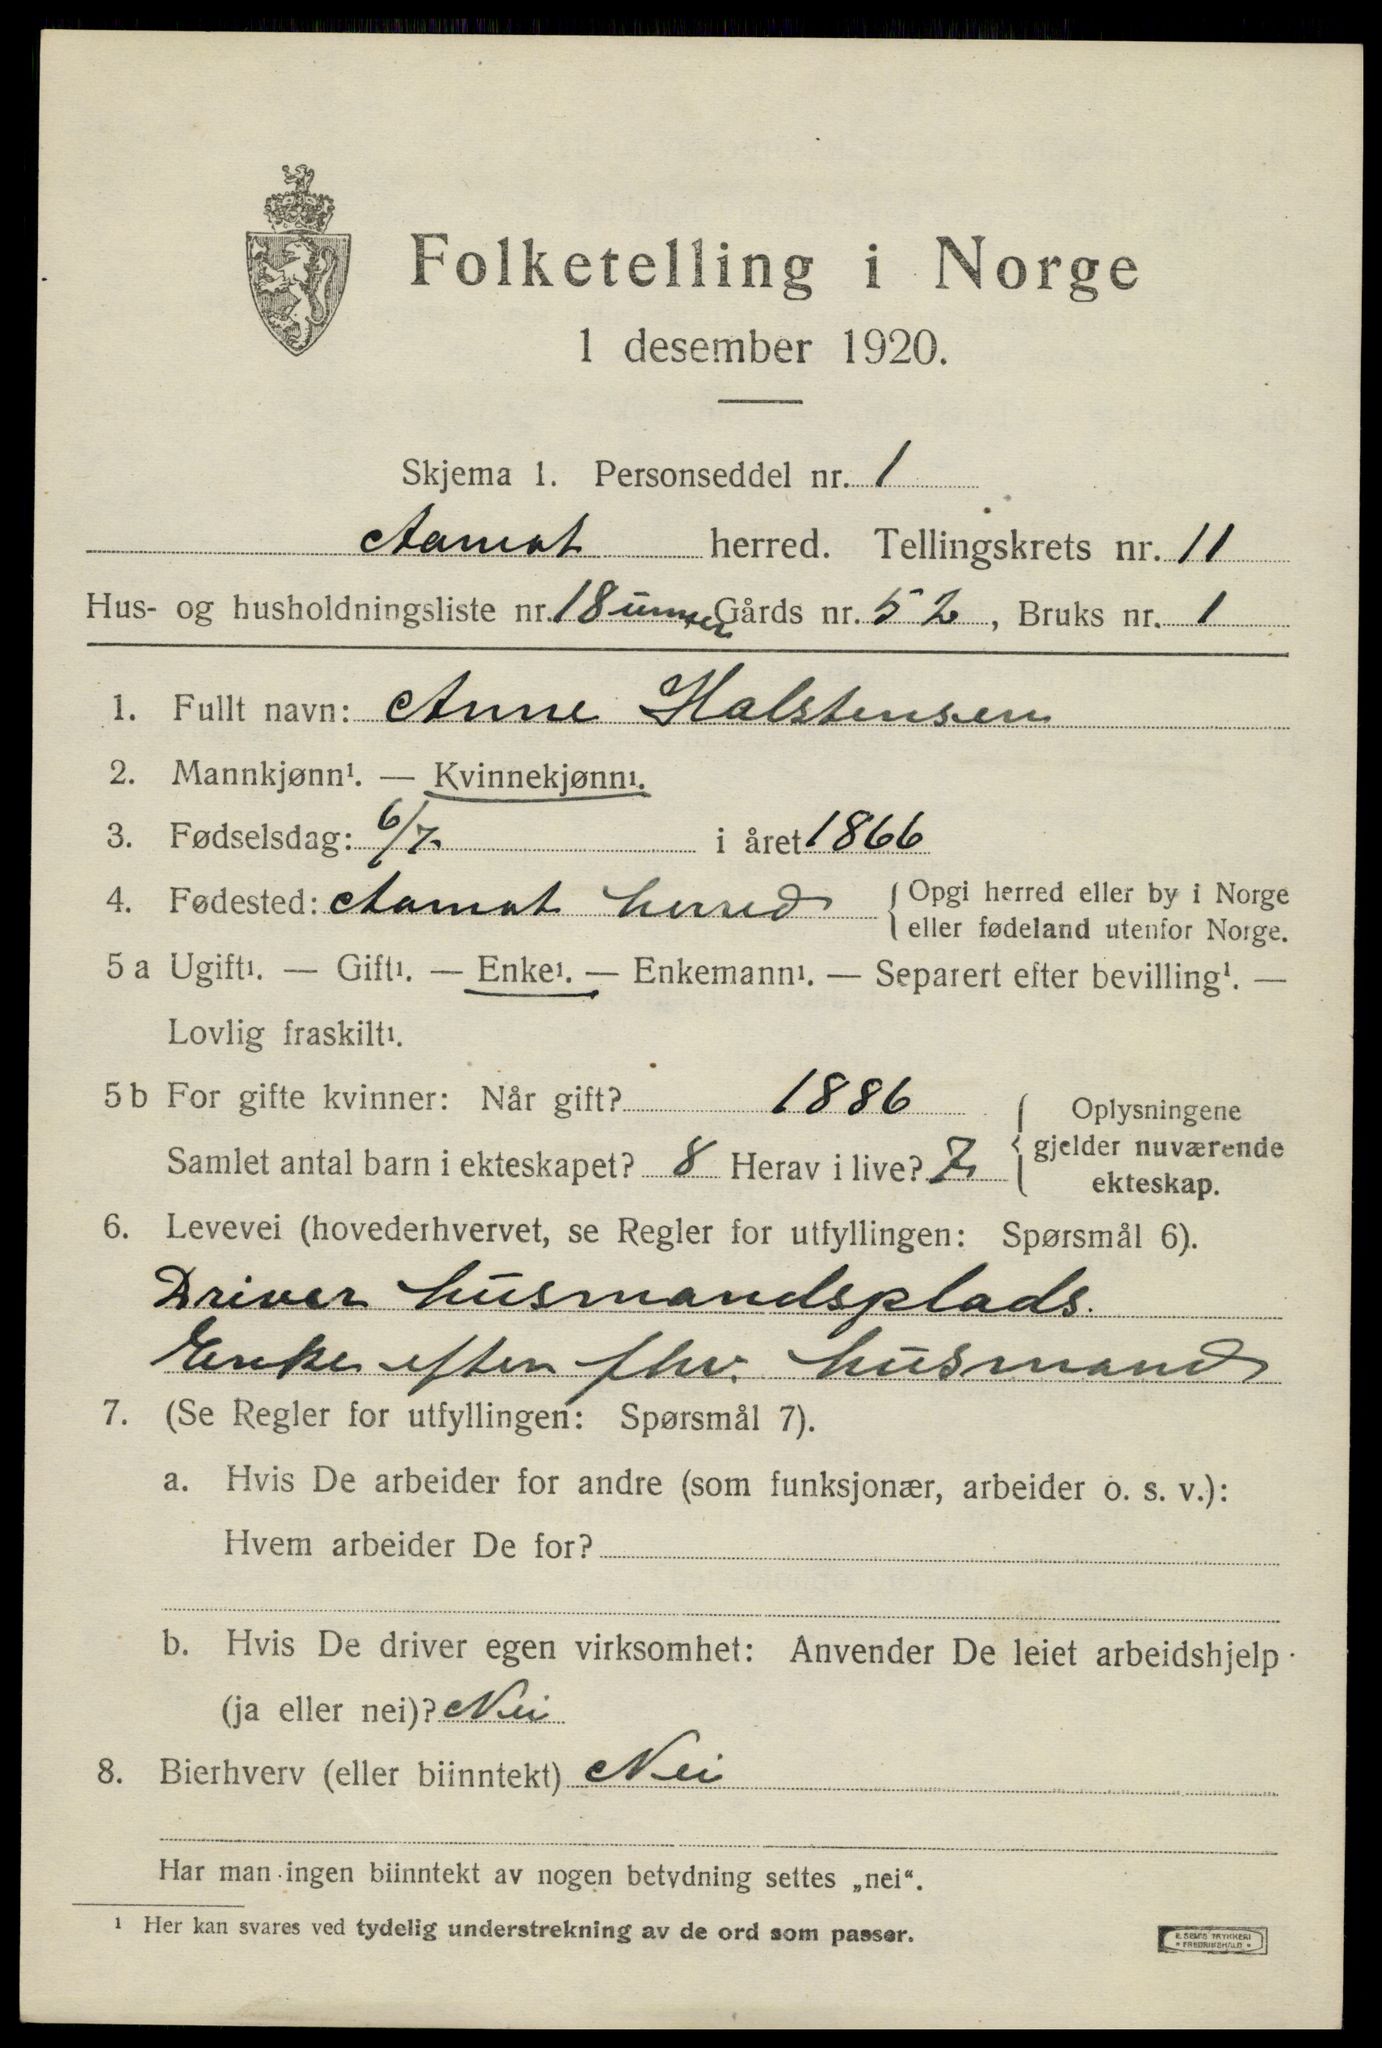 Folketelling i Norge
1 desember 1920.
Skjema 1. Personseddel nr. 1
Aamot herred. Tellingskrets nr. 11
Hus- og husholdningsliste nr. 18 Gårds nr. 52, Bruks nr. 1
1. Fullt navn: Anne Halstensen
2. Mannkjønn¹. — Kvinnekjønn¹.
3. Fødselsdag: 6/7 i året 1866
4. Fødested: Aamot herred { Opgi herred eller by i Norge
eller fødeland utenfor Norge.
5 a Ugift¹. — Gift¹. — Enke¹. — Enkemann¹. — Separert efter bevilling¹. —
Lovlig fraskilt¹.
5 b For gifte kvinner: Når gift? 1886 { Oplysningene
gjelder nuværende
Samlet antal barn i ekteskapet? 8 Herav i live? 7
ekteskap.
6. Levevei (hovederhvervet, se Regler for utfyllingen: Spørsmål 6).
Driver husmandsplads.
Enke efter fhv. husmand
7. (Se Regler for utfyllingen: Spørsmål 7).
a. Hvis De arbeider for andre (som funksjonær, arbeider o. s. v.):
Hvem arbeider De for?
b. Hvis De driver egen virksomhet: Anvender De leiet arbeidshjelp
(ja eller nei)? Nei
8. Bierhverv (eller biinntekt) Nei
Har man ingen biinntekt av nogen betydning settes „nei“.
¹ Her kan svares ved tydelig understrekning av de ord som passer.
E. SEM'S TRYKKERI
• FREDRIKSHALD •